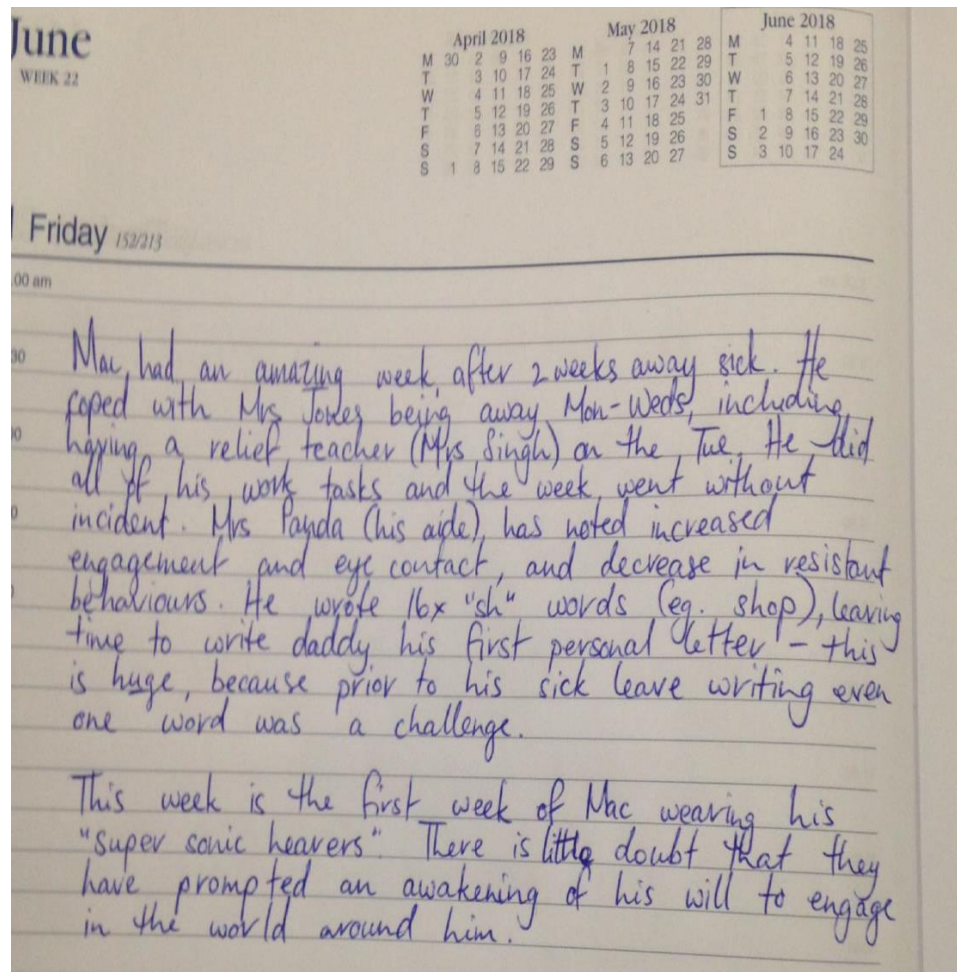 June
WEEK 22
April 2018
M 30 2 9 16 23
T 3 10 17 24
W 4 11 18 25
T 5 12 19 26
F 6 13 20 27
S 7 14 21 28
S 1 8 15 22 29
May 2018
M 7 14 21 28
T 1 8 15 22 29
W 2 9 16 23 30
T 3 10 17 24 31
F 4 11 18 25
S 5 12 19 26
S 6 13 20 27
June 2018
M 4 11 18 25
T 5 12 19 26
W 6 13 20 27
T 7 14 21 28
F 1 8 15 22 29
S 2 9 16 23 30
S 3 10 17 24
Friday 152/213
00 am
30
Mac had an amazing week after 2 weeks away sick. He
coped with Mrs Jones being away Mon-Weds, including
having a relief teacher (Mrs Singh) on the Tue. He did
all of his work tasks and the week went without
incident. Mrs Panda (his aide), has noted increased
engagement and eye contact, and decrease in resistant
behaviours. He wrote 16x "sh" words (eg. shop), leaving
time to write daddy his first personal letter - this
is huge, because prior to his sick leave writing even
one word was a challenge.
This week is the first week of Mac wearing his
"super sonic hearers". There is little doubt that they
have prompted an awakening of his will to engage
in the world around him.